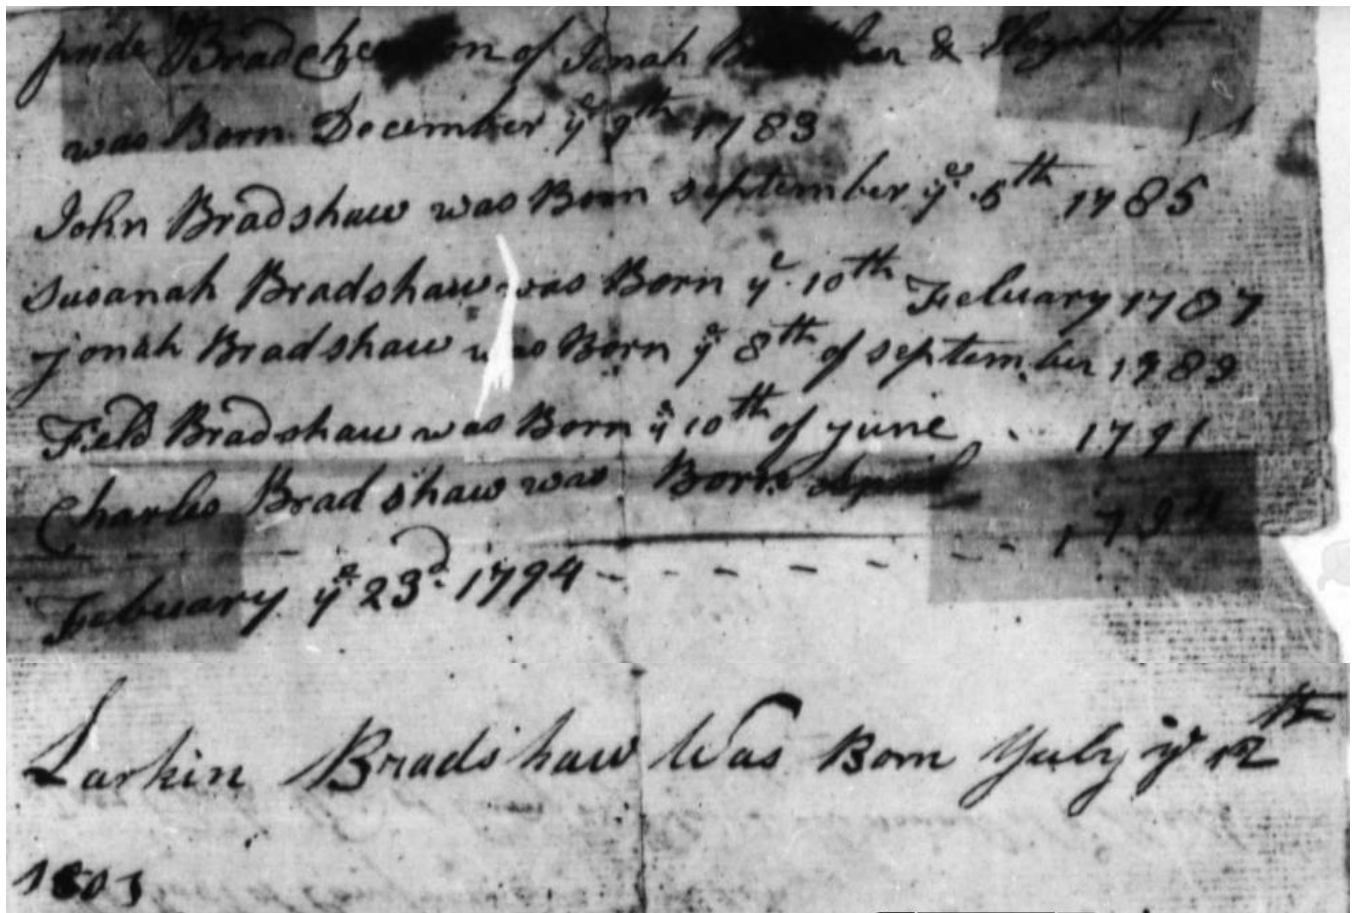 pride Bradcher son of Jonah Bradcher & Elizabeth
was Born December ye 9th 1783
John Bradshaw was Born september ye 5th 1785
Susanah Bradshaw was Born ye 10th Feluary 1787
Jonah Bradshaw was Born ye 8th of september 1789
Feld Bradshaw was Born ye 10th of june 1791
Charles Bradshaw was Born 1794
Febuary ye 23d 1794
Larkin Bradshaw Was Born July ye 12th
1801